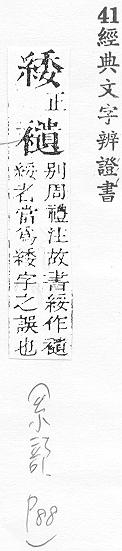 41 經典文字辨證書
緌 正
䙡 別周禮注故書綏作䙡
綏者當爲緌字之誤也
(糸部 P88)